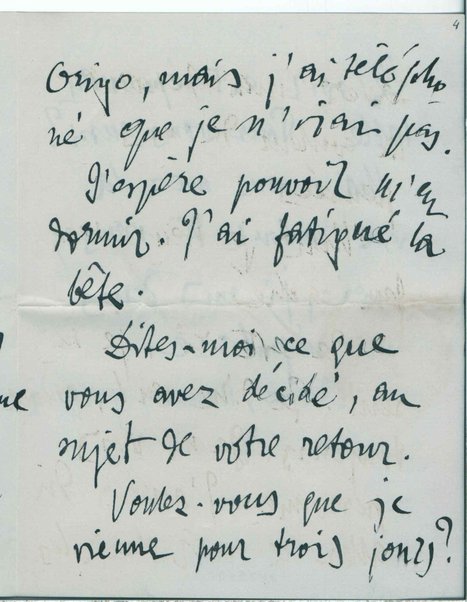 4
Origo, mais j'ai télépho
né que je n'irai pas.
J'espère pouvoir m'en
dormir. J'ai fatigué la
bête.
Dites-moi ce que
vous avez décidé, au
sujet de votre retour.
Voulez-vous que je
vienne pour trois jours?